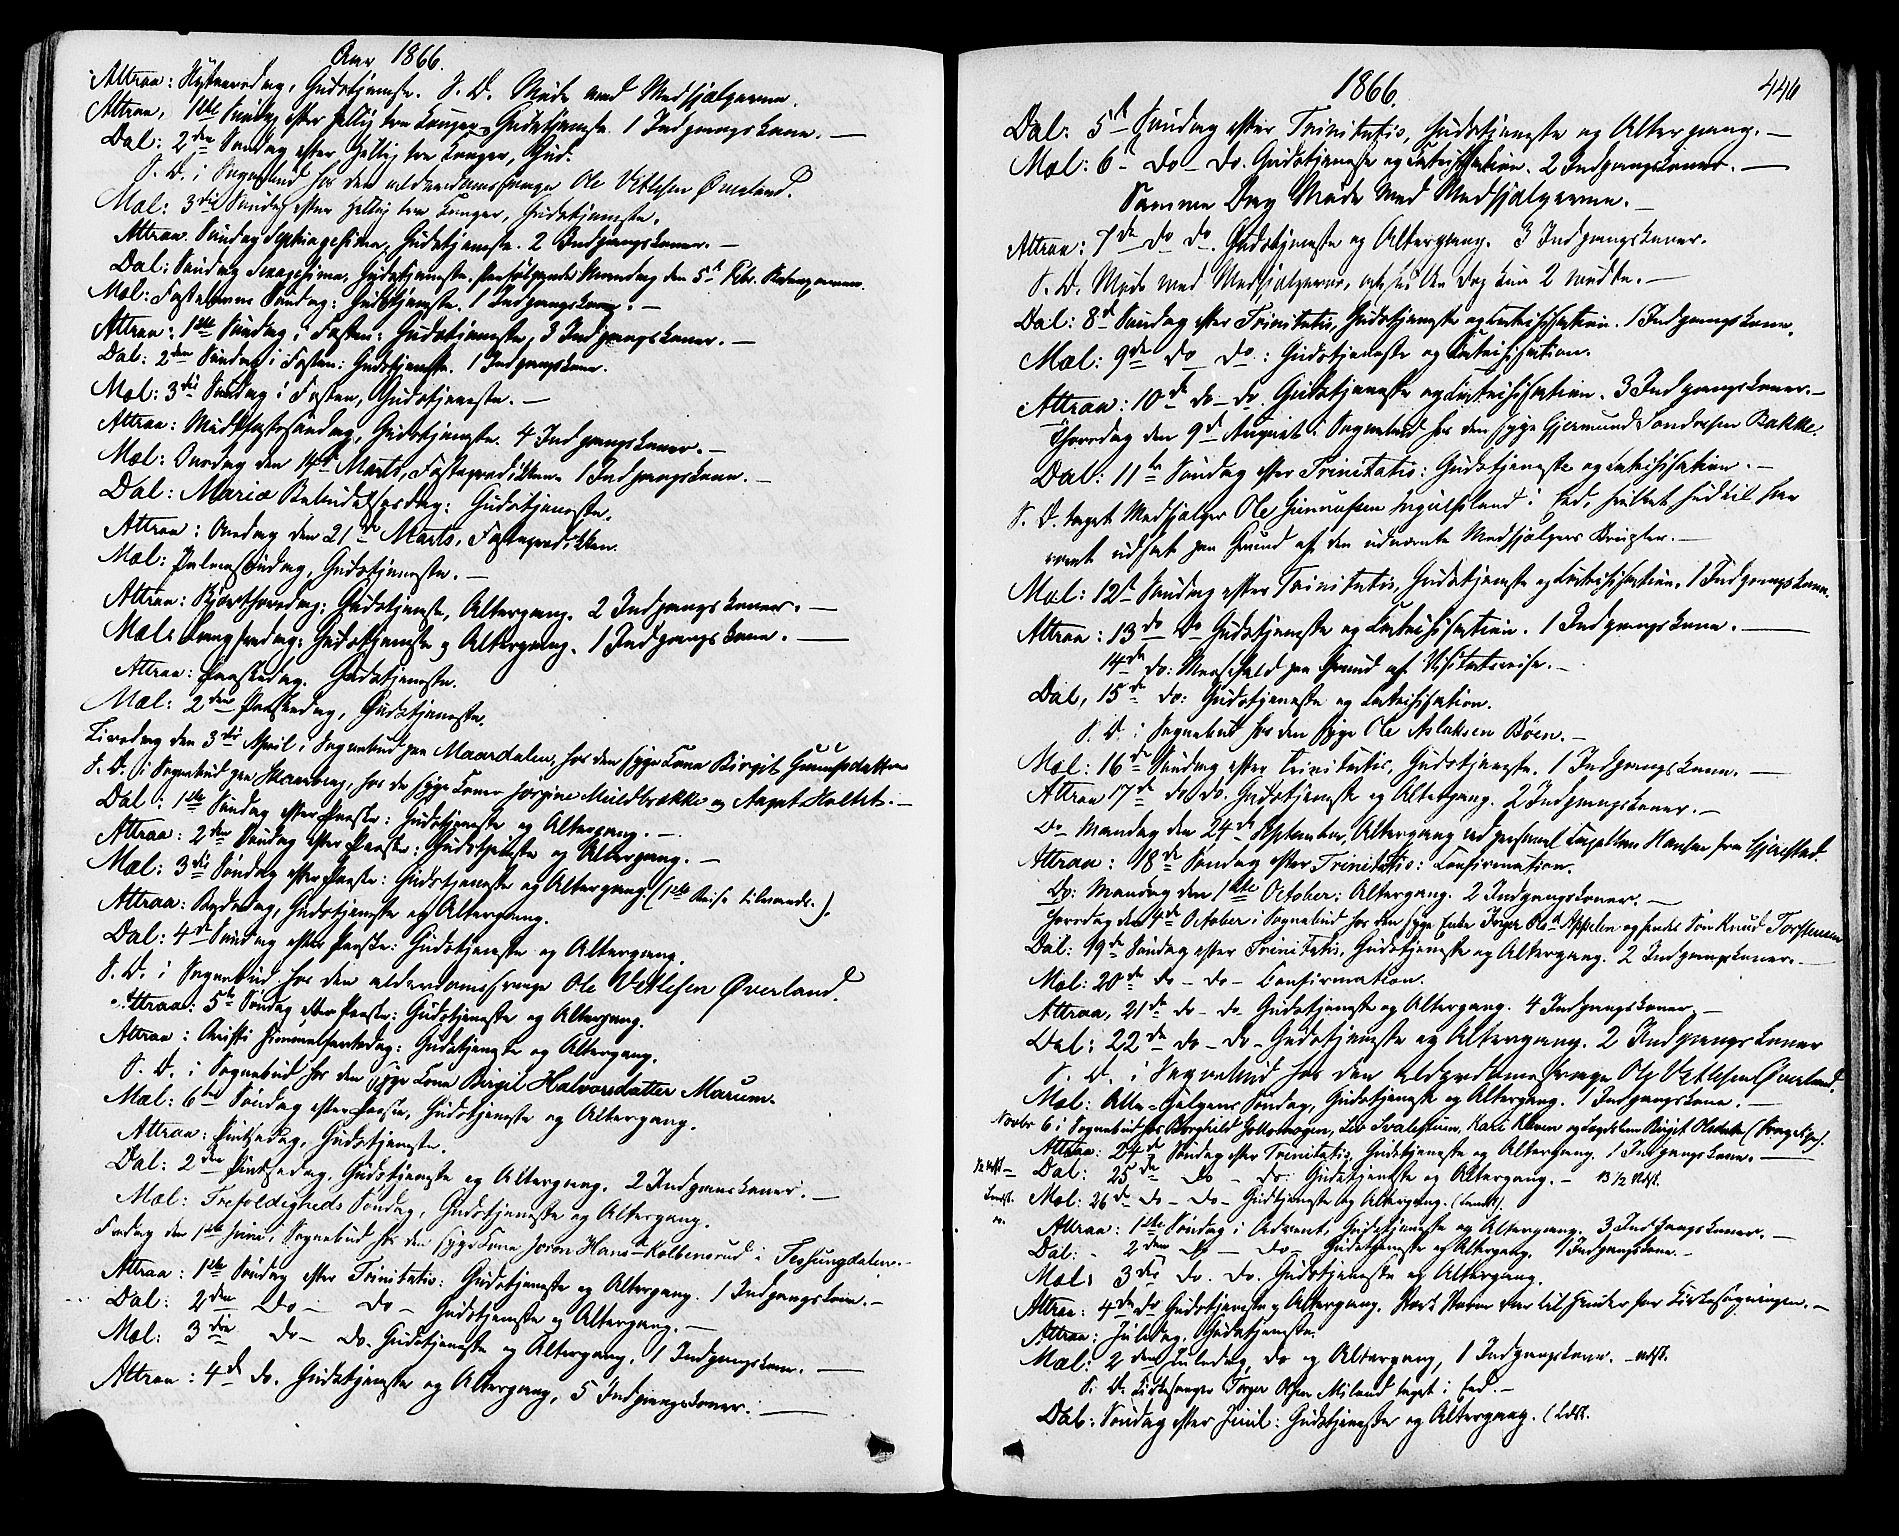 Aar 1866.
Attraa: Nytaarsdag, Gudstjeneste. S. D. Møde med Medhjælperne.
Attraa, 1ste Søndag efter Hellig tre Konger, Gudstjeneste. 1 Indgangskone. —
Dal: 2den Søndag efter Hellig tre Konger, Gud.
S. D. i Sognebud hos den alderdomssvage Ole Vetlesen Øverland.
Mæl: 3die Søndag efter Hellig tre Konger, Gudstjeneste.
Attraa Søndag Septuagesima, Gudstjeneste. 2 Indgangskoner. —
Dal: Søndag Sexagesima, Gudstjeneste. Paafølgende Mandag den 5te Febr.
Mæl: Fastelavns Søndag: Gudstjeneste. 1 Indgangskone. —
Attraa: 1ste Søndag i Fasten: Gudstjeneste, 3 Indgangskoner. —
Dal: 2den Søndag i Fasten: Gudstjeneste. 1 Indgangskone.
Mæl: 3die Søndag i Fasten, Gudstjeneste. —
Attraa: Midtfastesøndag, Gudstjeneste. 4 Indgangskoner. —
Mæl: Onsdag den 14de Marts, Fasteprædiken. 1 Indgangskone. —
Dal: Mariæ Bebudelsesdag: Gudstjeneste.
Attraa: Onsdag den 21de Marts, Fasteprædiken.
Mæl: Palmesøndag, Gudstjeneste. —
Attraa: Skjærthorsdag: Gudstjeneste, Altergang. 2 Indgangskoner. —
Mæl: Langfredag: Gudstjeneste og Altergang. 1 Indgangskone. —
Attraa: Paaskedag. Gudstjeneste.
Mæl: 2den Paaskedag, Gudstjeneste.
Tirsdag den 3die April i Sognebud paa Maardalen, hos den syge Kone Birgit Gunulfsdatter
S. D. i Sognebud paa, hos de syge Koner Jorgine Muldbrække og Aagot Holtet. —
Dal: 1ste Søndag efter Paaske: Gudstjeneste og Altergang. —
Attraa: 2den Søndag efter Paaske: Gudstjeneste og Altergang. —
Mæl: 3die Søndag efter Paaske: Gudstjeneste og Altergang. (1ste Reise tilvands.).
Attraa: Bededag, Gudstjeneste og Altergang.
Dal: 4de Søndag efter Paaske: Gudstjeneste og Altergang.
S. D. i Sognebud hos den alderdomssvage Ole Vetlesen Øverland.
Attraa: 5te Søndag efter Paaske: Gudstjeneste og Altergang.
Attraa: Christi Himmelfartsdag: Gudstjeneste og Altergang.
S. D. i Sognebud hos den syge Kone Birgit Halvorsdatter Marum.
Mæl: 6te Søndag efter Paaske, Gudstjeneste og Altergang.
Attraa: Pintsedag, Gudstjeneste.
Dal: 2den Pintsedag, Gudstjeneste og Altergang. 2 Indgangskoner. —
Mæl: Trefoldigheds Søndag, Gudstjeneste og Altergang.
Fredag den 1ste Juni, Sognebud hos den syge Kone Joron Hans Kolbensrud i Tessungdalen. —
Attraa: 1ste Søndag efter Trinitatis: Gudstjeneste og Altergang. 1 Indgangskone. —
Dal: 2den Do — Do — Gudstjeneste og Altergang. —
Mæl: 3die Do — Do. Gudstjeneste og Altergang. 1 Indgangskone. —
Attraa: 4de do. Gudstjeneste og Altergang, 5 Indgangskoner. —
1866.
446
Dal: 5te Søndag efter Trinitatis, Gudstjeneste og Altergang. —
Mæl: 6 — Do — Do. Gudstjeneste og Catechisation. 2 Indgangskoner. —
Samme Dag Møde med Medhjælperne. —
Attraa: 7de Do do. Gudstjeneste og Altergang. 3 Indgangskoner.
S. D. Møde med Medhjælperne, af hvilke dog kun 2 mødte. —
Dal: 8de Søndag efter Trinitatis, Gudstjeneste og Catechisation. 1 Indgangskone.
Mæl: 9de Do Do: Gudstjeneste og Catechisation.
Attraa: 10de do — do. Gudstjeneste og Catechisation. 3 Indgangskoner. —
Thorsdag den 9de August i Sognebud hos den syge Gjermund Sondresen Bakke.
Dal: 11te Søndag efter Trinitatis: Gudstjeneste og Catechisation. —
S. D. taget Medhjælper Ole Gunnufsen Ingulfsland i Eed, hvilket hidtil har
været udsat paa Grund af den udnævnte Medhjælpers. —
Mæl: 12te Søndag efter Trinitatis, Gudstjeneste og Catechisation. 1 Indgangskone.
Attraa: 13de Do Gudstjeneste og Catechisation. 1 Indgangskone. —
14de do: Messefald paa Grund af Visitatsreise. —
Dal, 15de do: Gudstjeneste og Catechisation.
S. D. i Sognebud hos den syge Ole Aslaksen Bøen. —
Mæl: 16de Søndag efter Trinitatis, Gudstjeneste. 1 Indgangskone. —
Attraa 17de do do. Gudstjeneste og Altergang. 2 Indgangskoner. —
Do Mandag den 24de September, Altergang ved personel Capellan Hansen fra Gjerestad.
Attraa: 18de Søndag efter Trinitatis: Confirmation.
Do: Mandag den 1ste October: Altergang. 2 Indgangskoner. —
Thorsdag den 4de October i Sognebud hos den syge Enke og hendes Søn Knud Torstensen
Dal: 19de Søndag efter Trinitatis, Gudstjeneste og Altergang. 2 Indgangskoner. —
Mæl: 20de do — do — Confirmation.
Attraa, 21de do — do Gudstjeneste og Altergang. 4 Indgangskoner. —
Dal: 22de do — do — Gudstjeneste og Altergang. 2 Indgangskoner
S. D. i Sognebud hos den alderdomssvage Ole Vetlesen Øverland.
Mæl: Alle-Helgens Søndag, Gudstjeneste og Altergang. 1 Indgangskone. —
Novbr 6 i Sognebud hos Borghild, Kari og Birgit
Attraa: 24de Søndag efter Trinitatis, Gudstjeneste og Altergang. 1 Indgangskone. —
Dal: 25de Do — do: Gudstjeneste og Altergang. —
Mæl: 26de do — do — Gudstjeneste og Altergang.
Attraa: 1ste Søndag i Advent, Gudstjeneste og Altergang. 3 Indgangskoner. —
Dal: — 2den do — do — Gudstjeneste og Altergang. 1 Indgangskone. —
Mæl: 3die do. do. Gudstjeneste og Altergang.
Attraa: 4de do Gudstjeneste og Altergang. Stærk Storm var til Hinder for Kirkesøgningen. —
Attraa: Juledag. Gudstjeneste.
Mæl: 2den Juledag, do og Altergang, 1 Indgangskone. —
S. D. Kirkesanger Torger Olsen Miland taget i Eed. —
Dal: Søndag efter Juul: Gudstjeneste og Altergang.